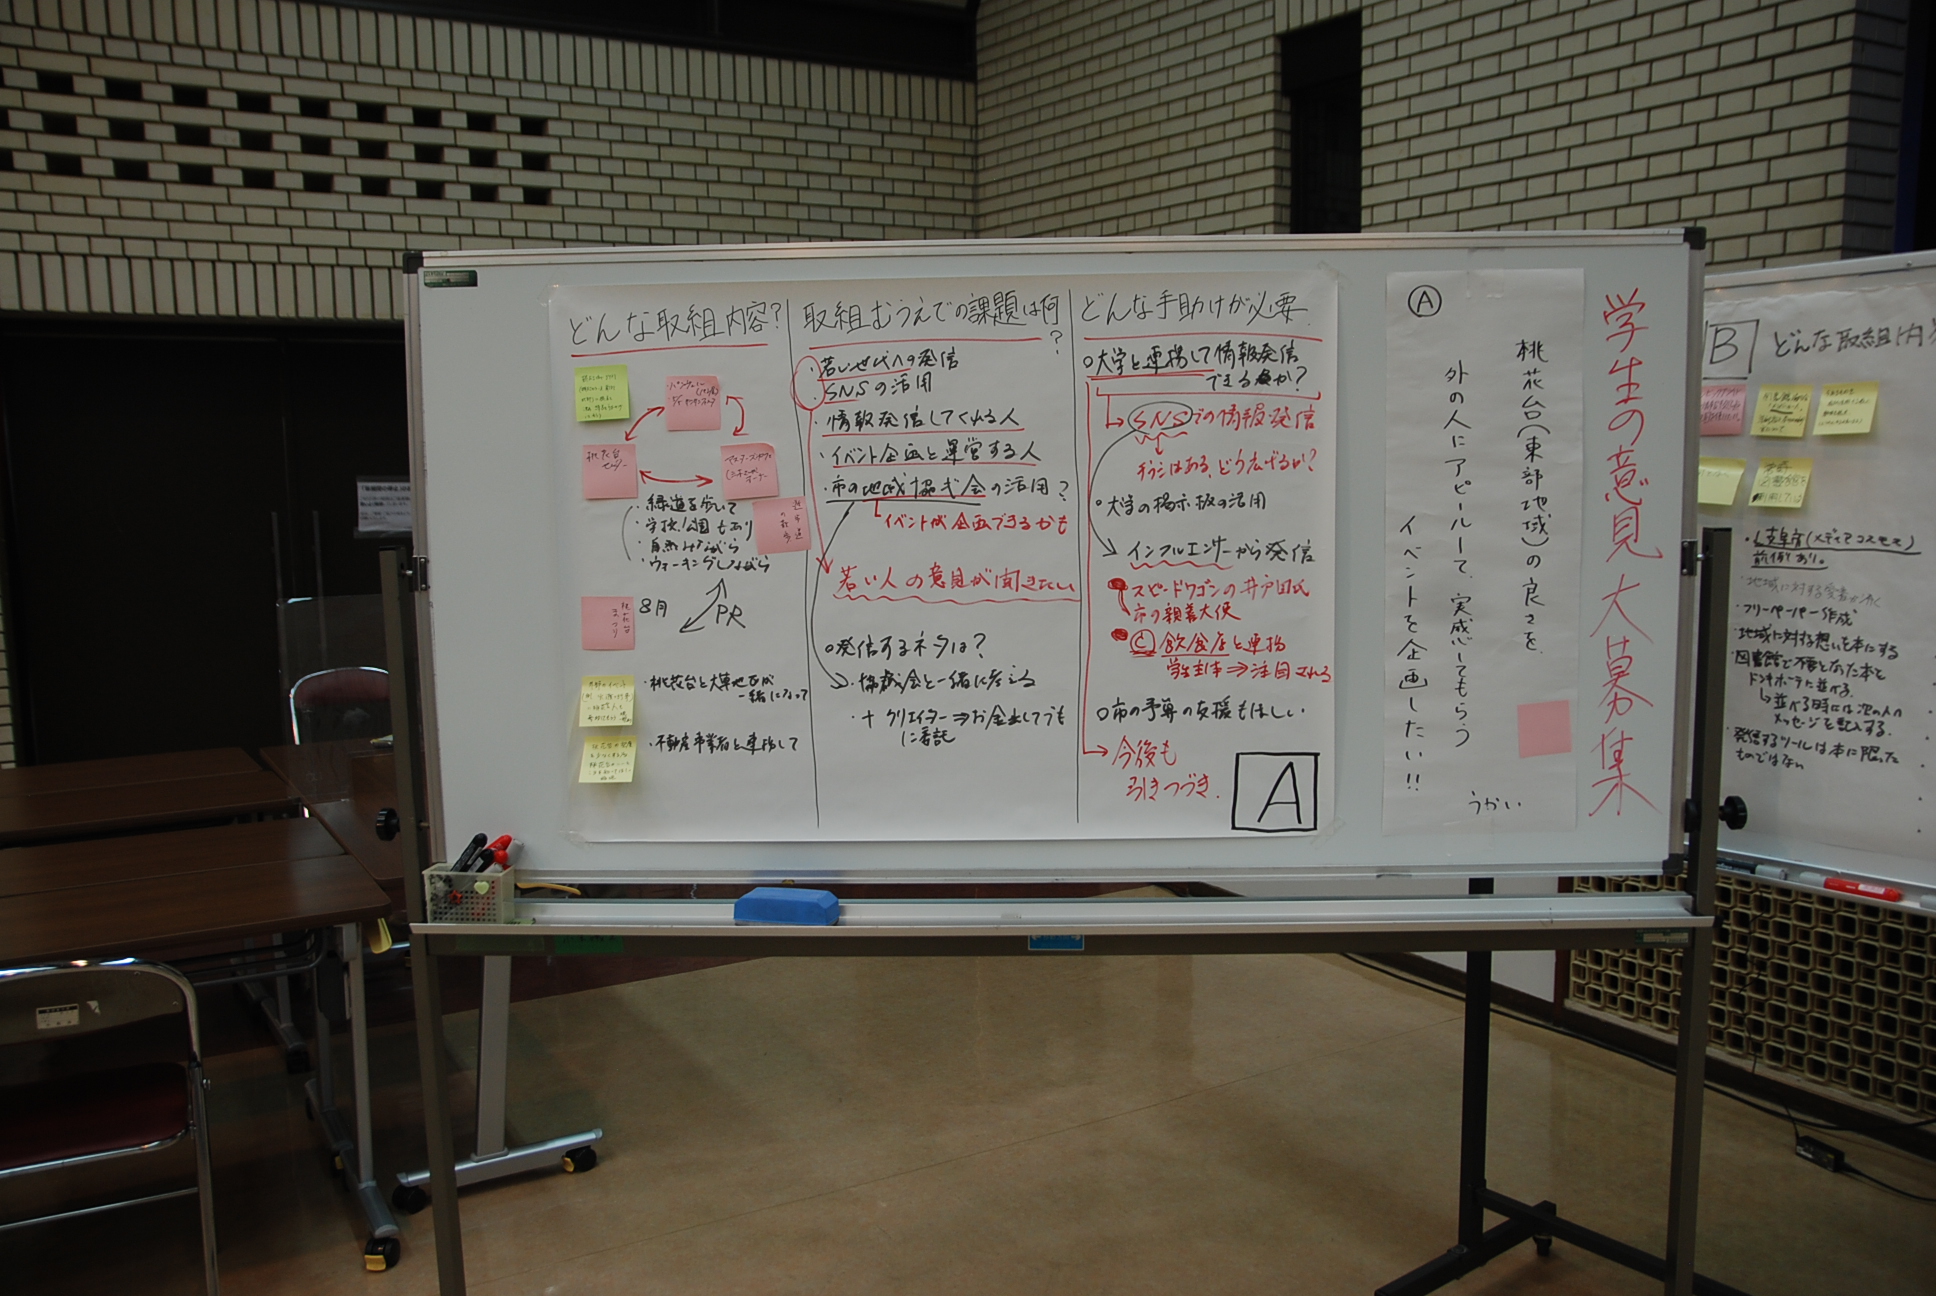 どんな取組内容?
桃花台
センター
・緑道を歩いて
・学校/公園もあり
・自然みながら
・ウォーキングしながら
桃花台
まつり
8月
PR
・桃花台と大草地区が
一緒になって
・不動産事業者と連携して
取組むうえでの課題は何
?
・若い世代への発信
・SNSの活用
・情報発信してくれる人
・イベント企画と運営する人
・市の地域協議会の活用?
イベントが企画できるかも
若い人の意見が聞きたい
○発信するネタは?
・協議会と一緒に考える
・+クリエイター⇒お金出してでも
に委託
どんな手助けが必要
○大学と連携して情報発信
できるか?
SNSでの情報発信
チラシはある、どう広げるか?
○大学の掲示板の活用
インフルエンサーから発信
スピードワゴンの井戸田氏
市の親善大使
飲食店と連携
学生主体⇒注目される
○市の予算の支援もほしい
今後も
引きつづき.
A
Ⓐ
桃花台(東部地域)の良さを、
外の人にアピールして、実感してもらう
イベントを企画したい!!
うかい
学生の意見大募集
B
どんな取組内
前例あり。
・フリーペーパー作成
・地域に対する想いを本にする
・図書館で不要となった本を
↳並べる時には次の人の
メッセージを記入する.
・発信するツールは本に限った
ものではない